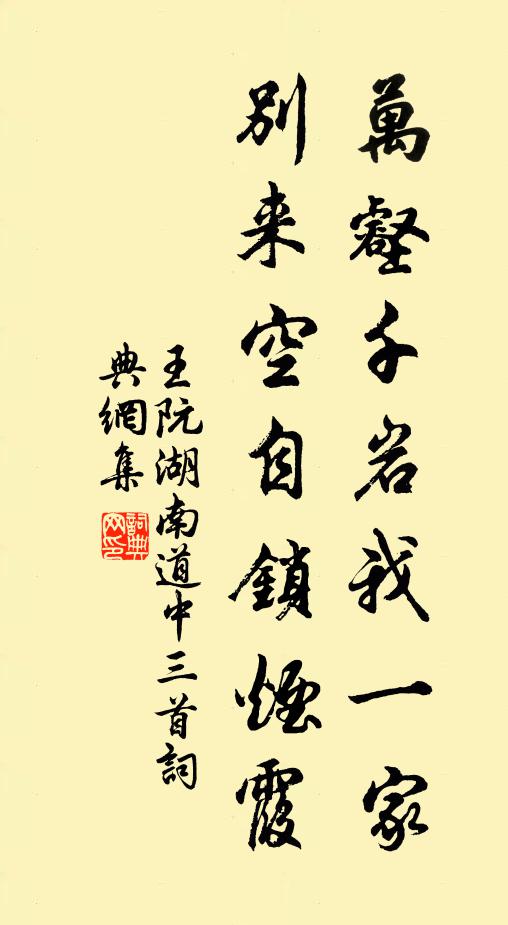 萬壑千岩我一家
別来空自鎖煙霞
王阮湖南道中三首詞
典網集
詞典
网印